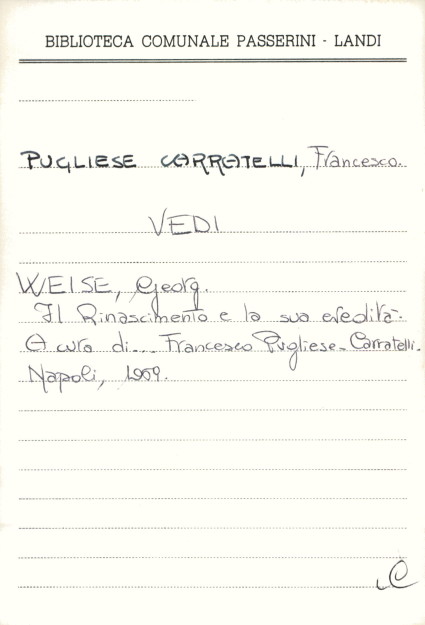 BIBLIOTECA COMUNALE PASSERINI - LANDI
PUGLIESE CARRATELLI, Francesco.
VEDI
WEISE, Georg.
Il Rinascimento e la sua eredità.
A cura di... Francesco Pugliese-Carratelli.
Napoli, 1969.